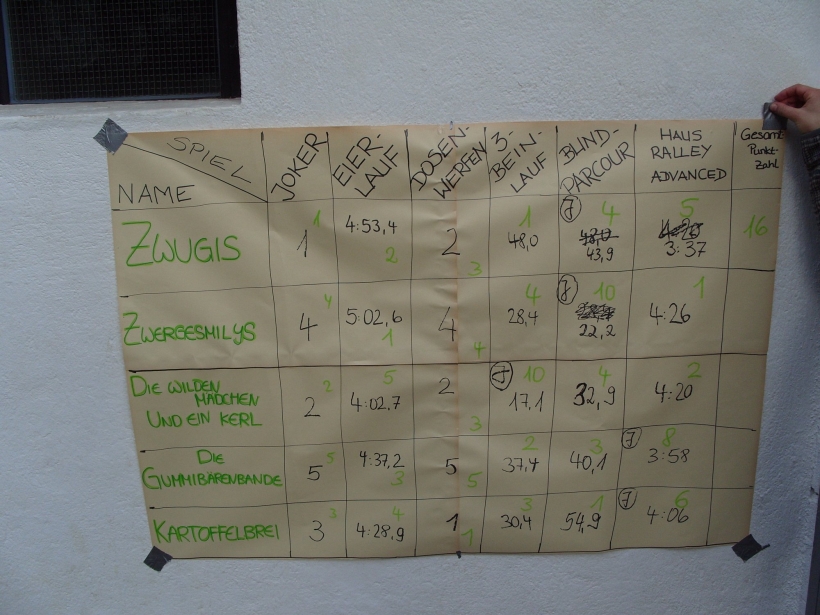 SPIEL
NAME
JOKER
EIER-
LAUF
DOSEN-
WERFEN
3-
BEIN-
LAUF
BLIND-
PARCOUR
HAUS
RALLEY
ADVANCED
Gesamt
Punkt-
Zahl
ZWUGIS
1
1
4:53,4
2
2
3
1
48,0
J
4
43,9
5
3:37
16
ZWERGESMILYS
4
4
5:02,6
1
4
4
4
28,4
J
10
22,2
1
4:26
DIE WILDEN
MÄDCHEN
UND EIN KERL
2
2
5
4:02,7
2
3
J
10
17,1
4
32,9
2
4:20
DIE
GUMMIBÄRENBANDE
5
5
4:37,2
3
5
5
2
37,4
3
40,1
J
8
3:58
KARTOFFELBREI
3
3
4
4:28,9
1
1
3
30,4
1
54,9
J
6
4:06